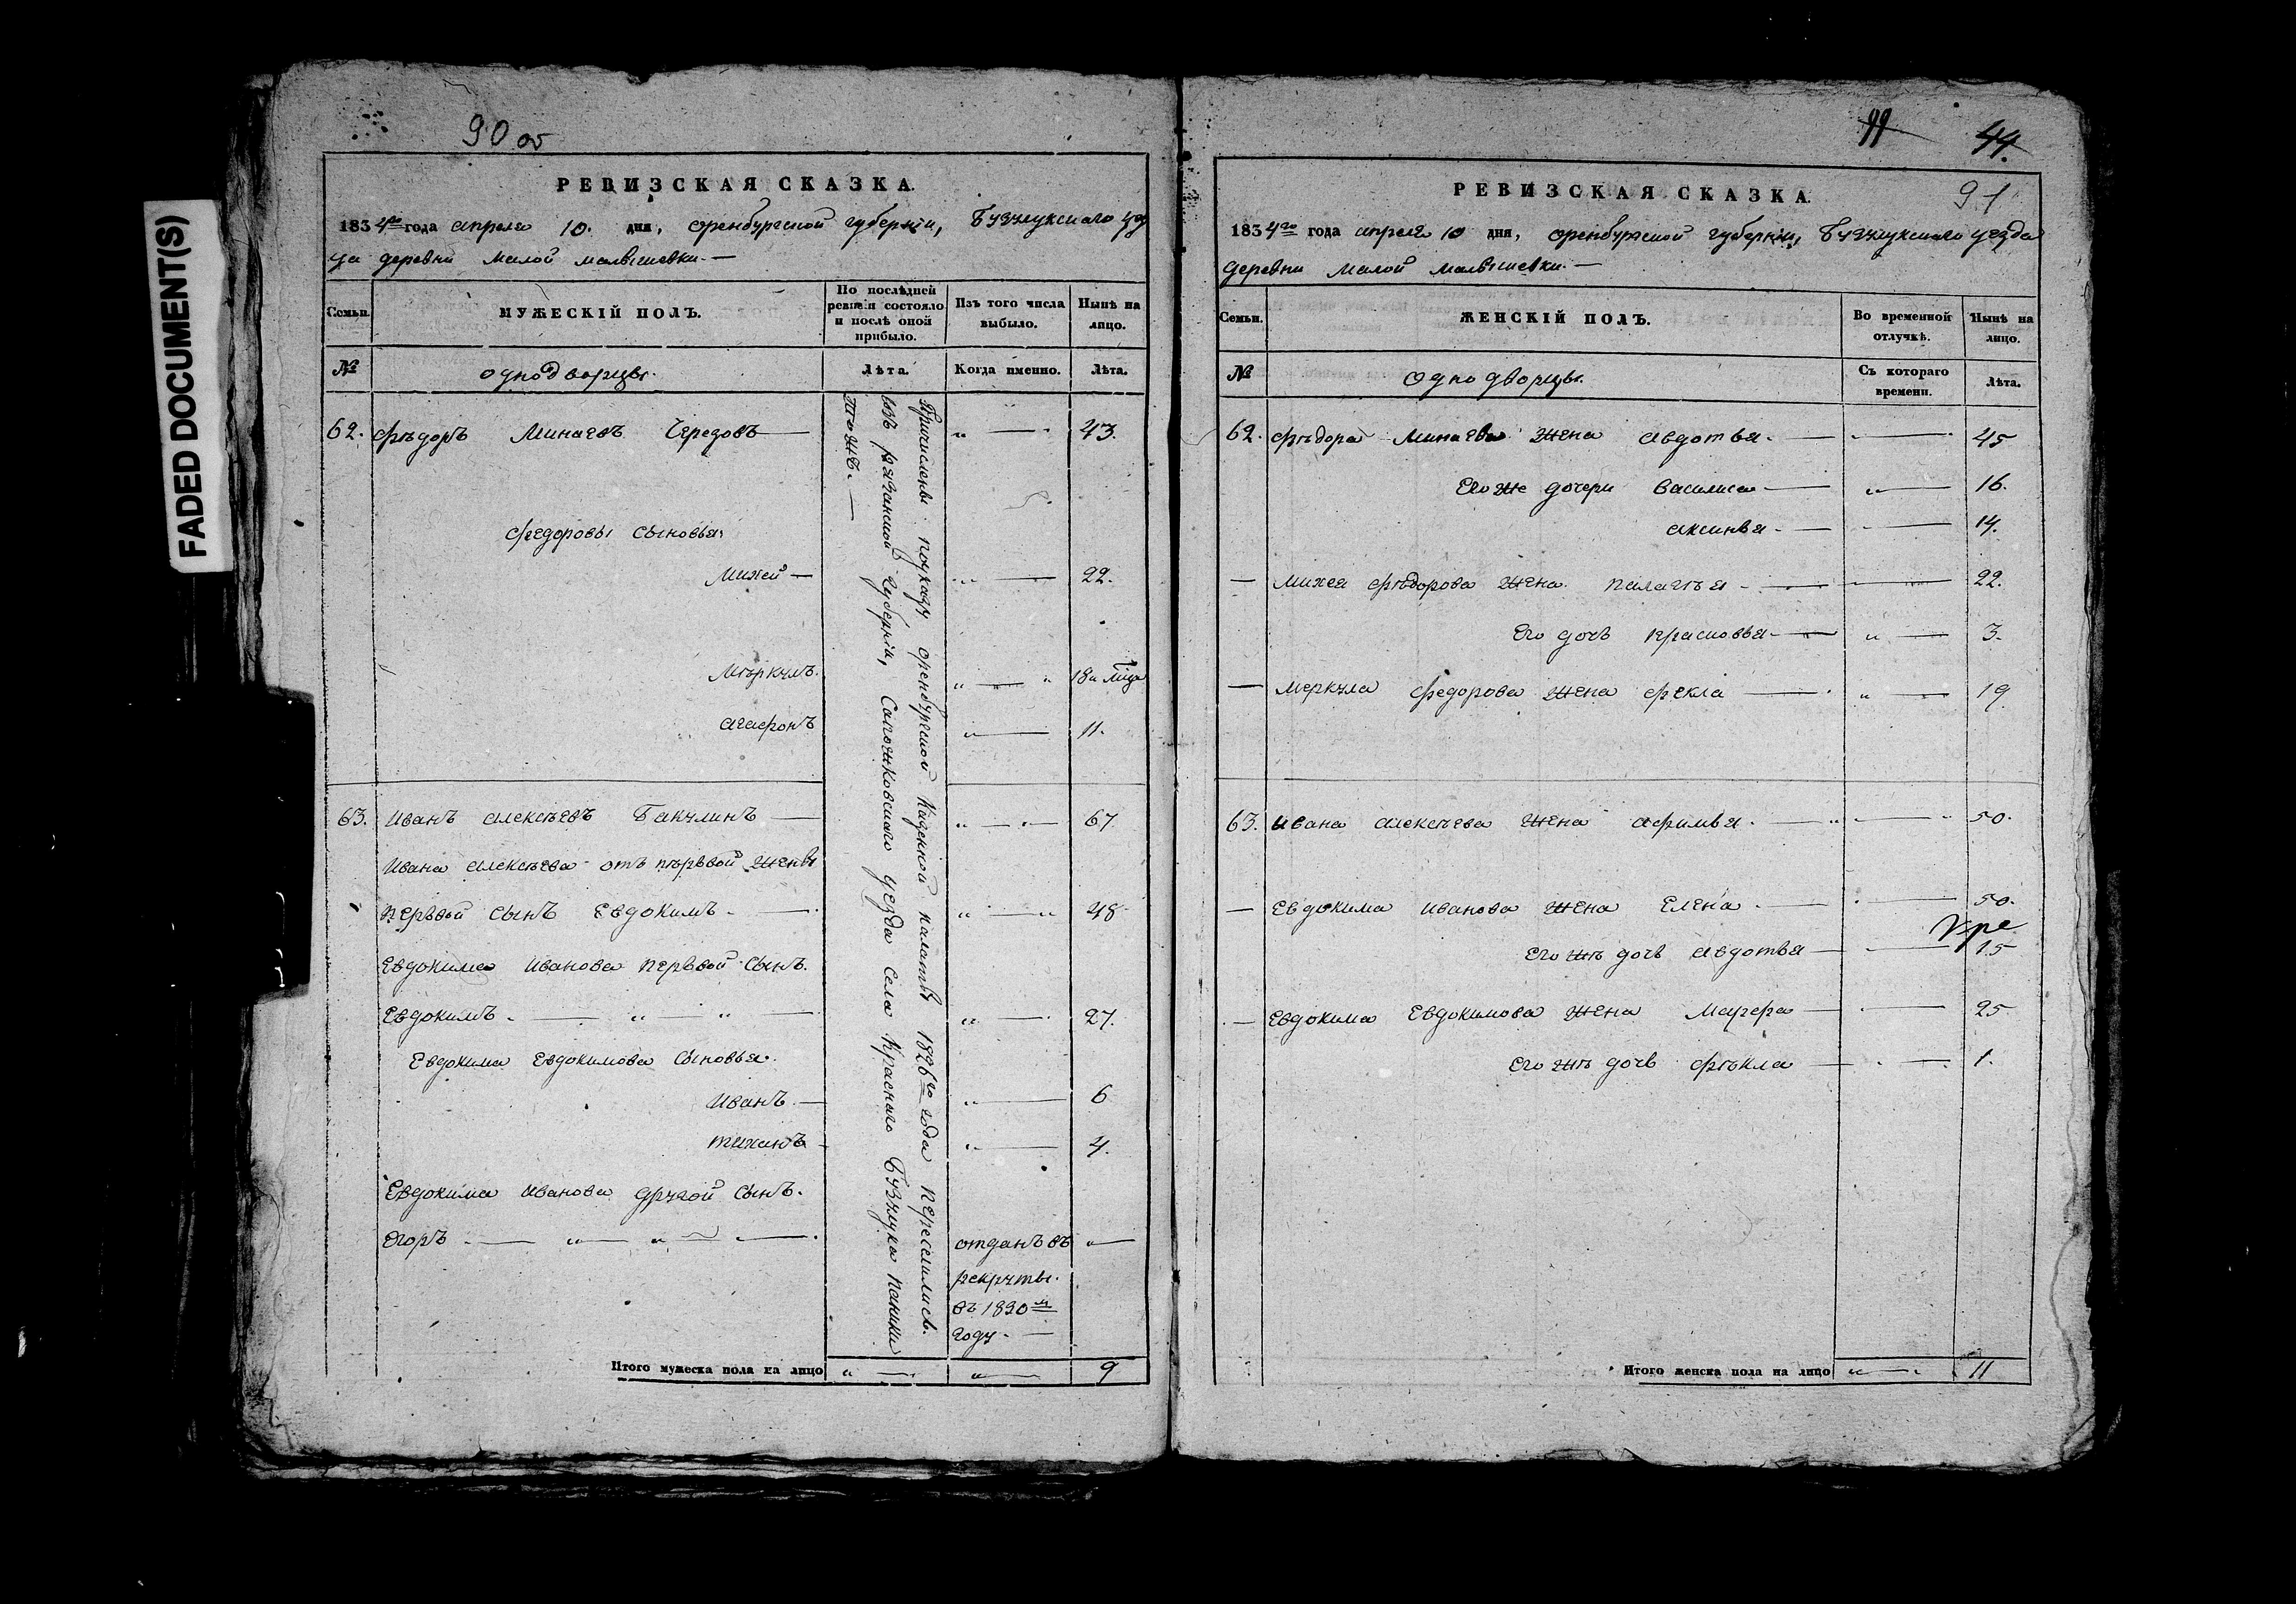 FADED DOCUMENT(S)
90 об
РЕВИЗСКАЯ СКАЗКА.
1834го года апреля 10. дня, оренбургской губерніи, Бузулукскаго уез
да деревни малой малышевки.—
Семьи.
МУЖЕСКІЙ ПОЛЪ.
По послѣдней ревизіи состояло и послѣ оной прибыло.
Изъ того числа выбыло.
Нынѣ на лицо.
№
однодворцы.
Лѣта.
Когда именно.
Лѣта.
Причислены по указу оренбургской казенной палаты 1826го года переселились
изъ рязанской губерніи, Сапожковскаго уезда села Краснаго
тожъ.—
62. Фѣдоръ Минаевъ Черезовъ — 43.
Федоровы сыновья:
Михей — 22.
Мѣркулъ. 18 и
агафонъ 11.
63. Иванъ алексѣевъ Бакулинъ — 67
Ивана алексѣева отъ пѣрвой жены
первой сынъ Евдокимъ. — 48
Евдокима Иванова первой сынъ.
Евдокимъ. — 27.
Евдокима Евдокимова сыновья.
Иванъ. — 6
тиханъ 4.
Евдокима Иванова другой сынъ.
Егоръ — отданъ въ
рекруты.
въ 1830м
году. —
Итого мужеска пола на лицо 9
99 44.
91
РЕВИЗСКАЯ СКАЗКА.
1834го года апреля 10 дня, оренбургской губерніи, Бузулукскаго уезда
деревни малой малышевки.—
Семьи.
ЖЕНСКІЙ ПОЛЪ.
Во временной отлучкѣ.
Нынѣ на лицо.
№
однодворцы.
Съ котораго времени.
Лѣта.
62. Фѣдора Минаева жена авдотья. — 45
Его же дочери василиса — 16.
аксинья — 14.
— михея фѣдорова жена палагѣя — 22.
Его дочь прасковья — 3.
— меркула федорова жена фекла — 19
63. Ивана алексѣева жена афимья. — 50.
— Евдокима Иванова жена Елена. — 50.
Его жъ дочь авдотья — 15
— Евдокима Евдокимова жена — 25
Его жъ дочь фѣкла — 1.
Итого женска пола на лицо 11